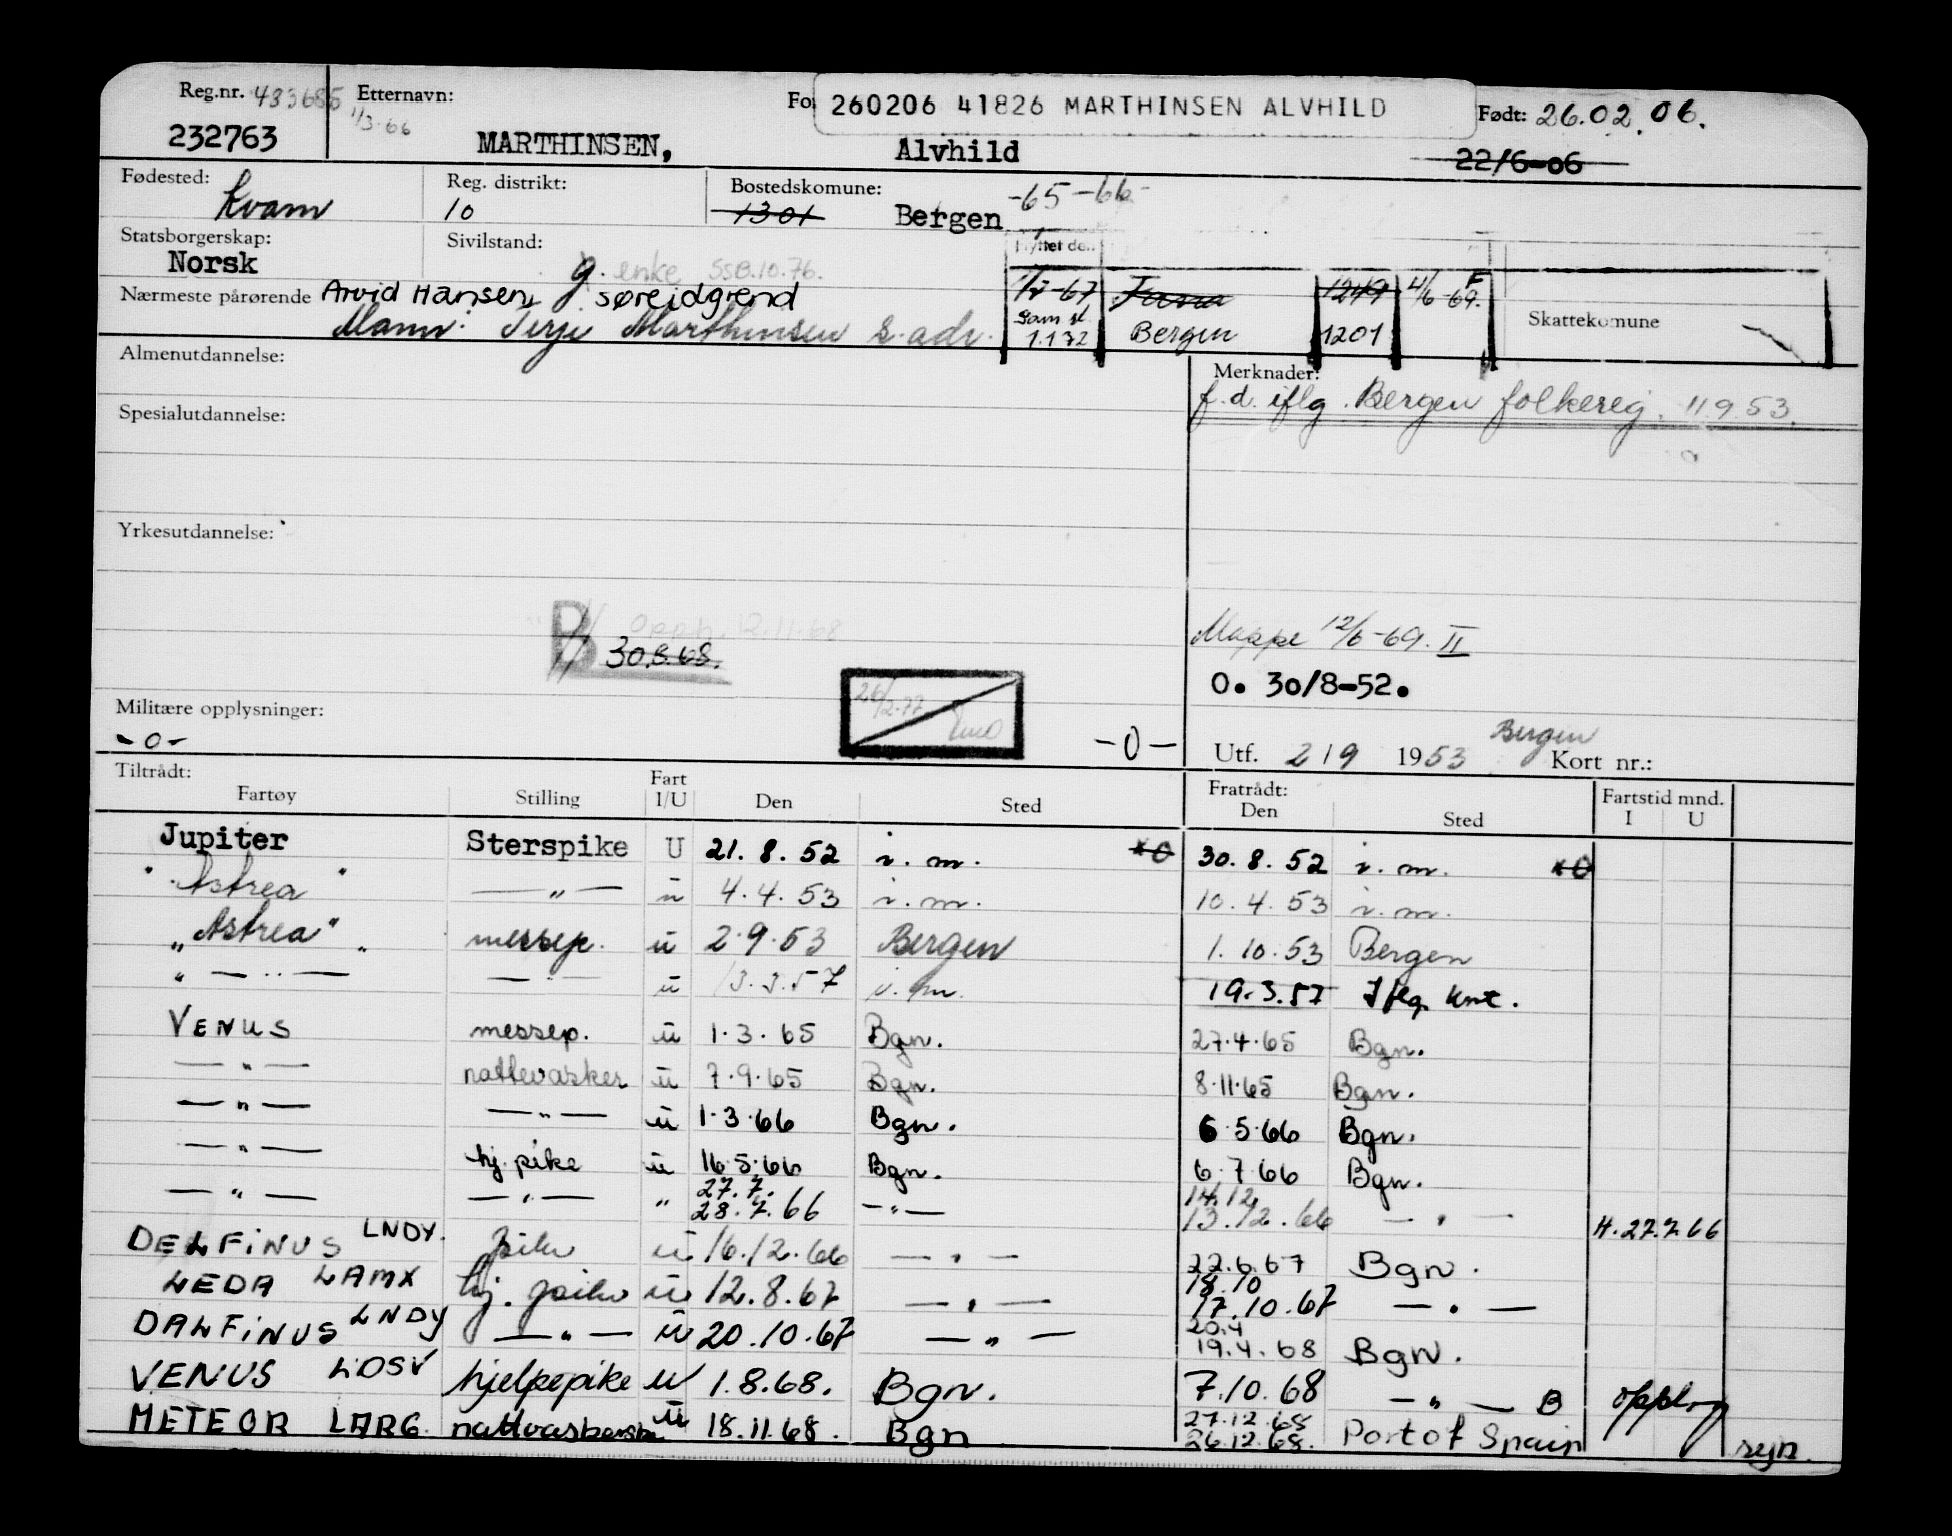 Reg.nr. 433685 Etternavn: Fo 260206 41826 MARTHINSEN ALVHILD Født: 26.02.06.
11/3-66
232763 MARTHINSEN, Alvhild 22/6-06
Fødested: Kvam Reg. distrikt: 10 Bostedskomune: 1301 Bergen -65-66-
Statsborgerskap: Norsk Sivilstand: g. enke SSB.10.76. Flyttet de
Nærmeste pårørende Arvid Hansen, Søreidgrend 1249 4/6-69. F
Mann: Terje Marthinsen s. adr. 1.1.72 Bergen 1201 Skattekomune
Almenutdannelse: Merknader:
f.d. iflg. Bergen folkereg. 11.9.53.
Spesialutdannelse:
Yrkesutdannelse:
B Opph. 12.11.68
30.8.68.
Mappe 12/6-69. II
O. 30/8-52.
Militære opplysninger: 26/2-77
-0- -0- Utf. 2/9 1953 Bergen Kort nr.:
Tiltrådt: Fartøy Stilling Fart I/U Den Sted Fratrådt: Den Sted Fartstid mnd. I U
Jupiter Sterspike U 21.8.52 i.m. 30.8.52 i.m.
"Astrea" —"— u 4.4.53 i.m. 10.4.53 i.m.
"Astrea" messep. u 2.9.53 Bergen 1.10.53 Bergen
"—"— —"— u 13.3.57 i.m. 19.3.57 Iflg. knt.
VENUS messep. u 1.3.65 Bgn. 27.4.65 Bgn.
—"— nattevasker u 7.9.65 Bgn. 8.11.65 Bgn.
—"— —"— u 1.3.66 Bgn. 6.5.66 Bgn.
—"— hj.pike u 16.5.66 Bgn. 6.7.66 Bgn.
27.7. 14.12
—"— —"— " 28.7.66 —"— 13.12.66 —"— H.27.7.66
DELFINUS LNDY. pike u 16.12.66 —"— 22.6.67 Bgn.
18.10
LEDA LAMX hj. pike u 12.8.67 —"— 17.10.67 —"—
20.4
DALFINUS LNDY —"— u 20.10.67 —"— 19.4.68 Bgn.
VENUS LDSV hjelpepike u 1.8.68. Bgn. 7.10.68 —"— B opplag
27.12.68
METEOR LARG. u 18.11.68. Bgn 26.12.68. Port of Spain